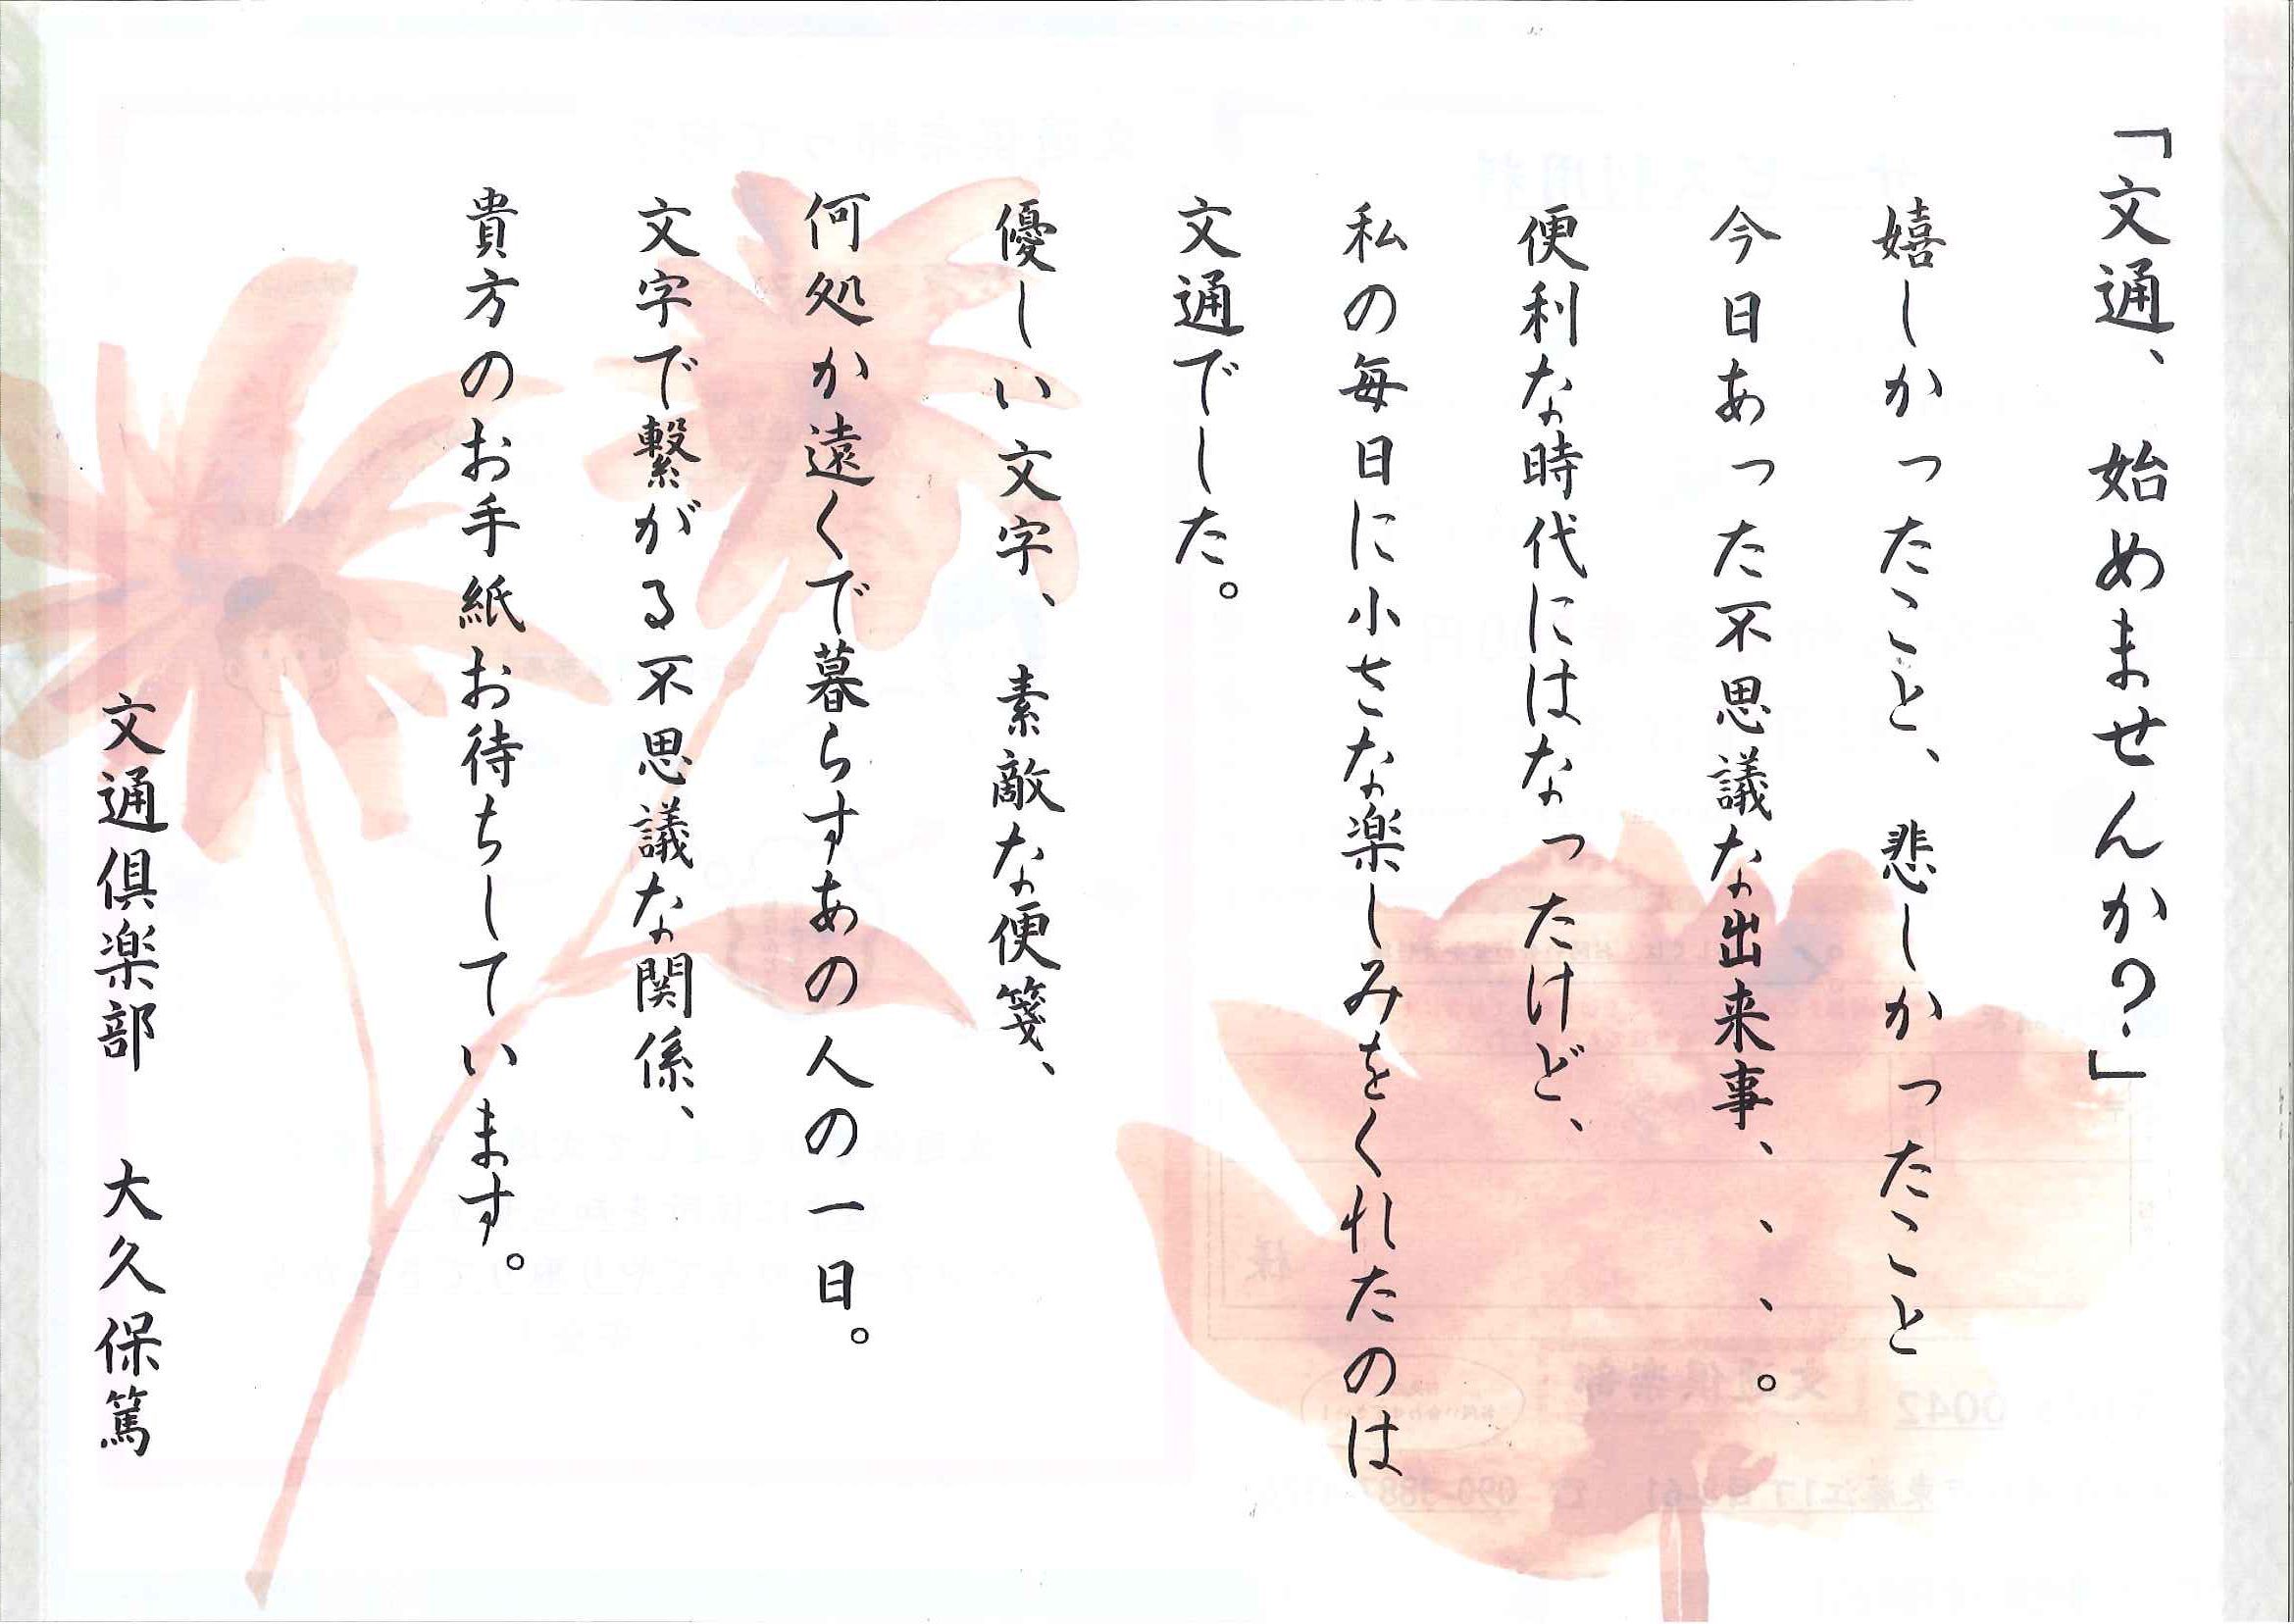 「文通、始めませんか？」
嬉しかったこと、悲しかったこと
今日あった不思議な出来事、、、、。
便利な時代にはなったけど、
私の毎日に小さな楽しみをくれたのは
文通でした。
優しい文字、素敵な便箋、
何処か遠くで暮らすあの人の一日。
文字で繋がる不思議な関係、
貴方のお手紙お待ちしています。
文通倶楽部　大久保篤